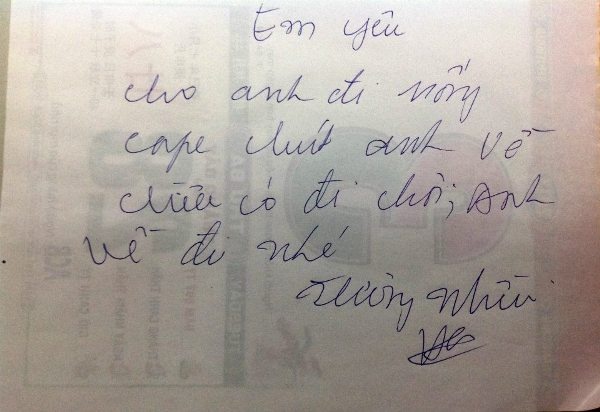 Em yêu
cho anh đi uống
cape chút anh về
chiều có đi chơi; Anh
về đi nhé
Thương nhiều